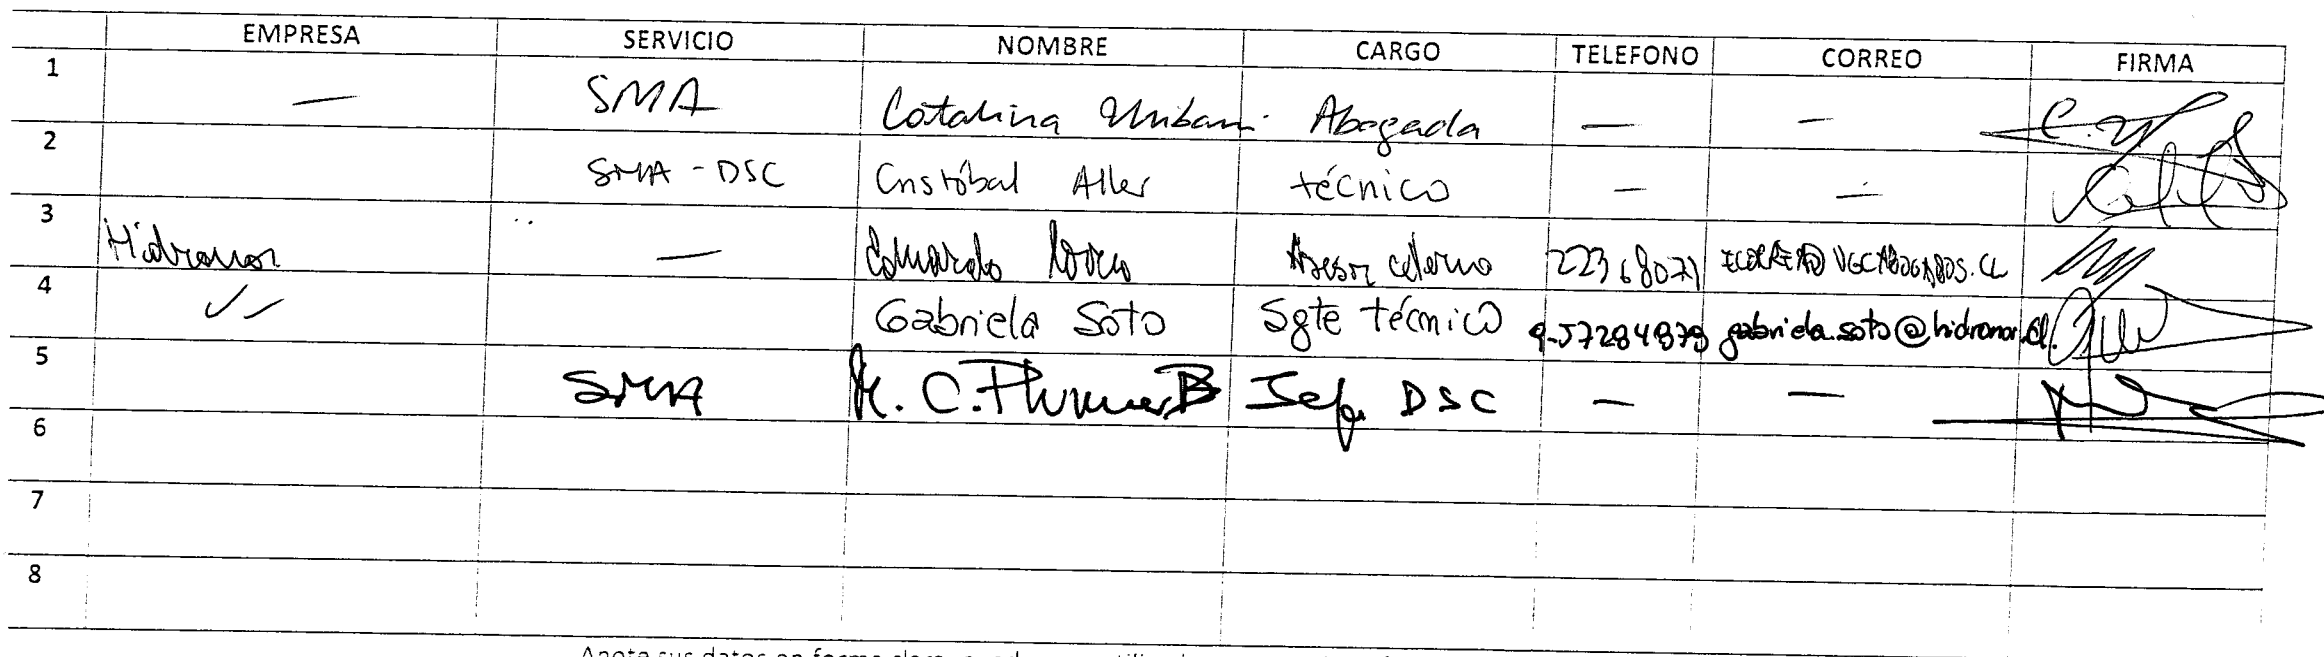 EMPRESA SERVICIO NOMBRE CARGO TELEFONO CORREO FIRMA
1 — SMA Catalina Abogada — —
2 SMA - DSC Cristóbal Aller técnico — —
3 Hidronor — Eduardo Asesor externo
4 Gabriela Soto Sgte técnico 9-57284879 gabriela.soto@hidronor.cl
5 SMA M. C. Plumer B Jefa DSC — —
6
7
8